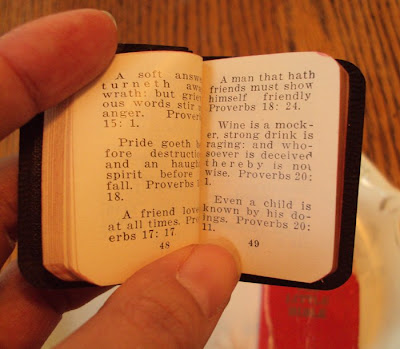 A soft answe
turneth awa
wrath: but grie
ous words stir
anger. Prover
15: 1.
Pride goeth b
fore destructio
and an haught
spirit before
fall. Proverbs
18.
A friend love
at all times. Pro
erbs 17: 17
48
A man that hath
friends must show
himself friendly
Proverbs 18: 24.
Wine is a mock-
er, strong drink is
raging: and who-
soever is deceived
thereby is not
wise. Proverbs 20:
1.
Even a child is
known by his do-
ings. Proverbs 20:
11.
49